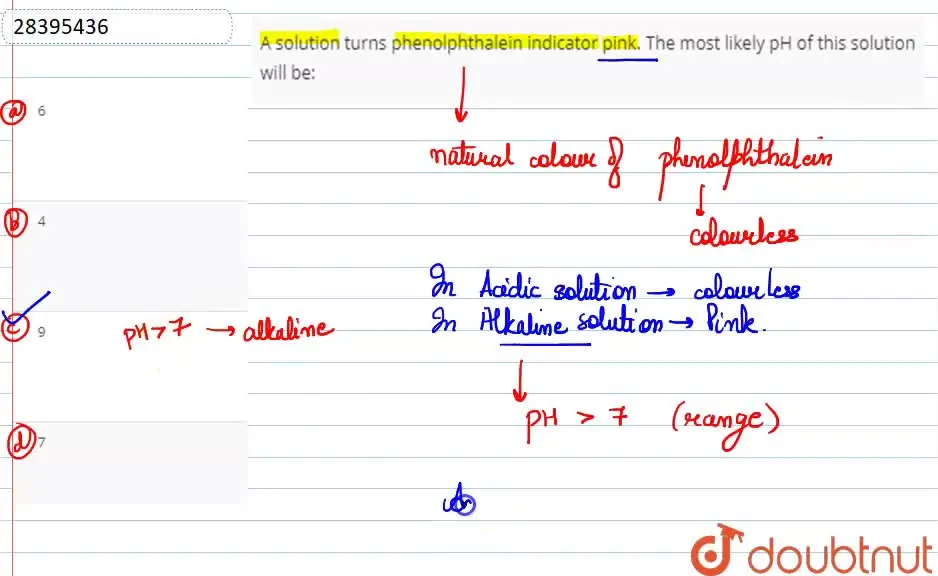 28395436
A solution turns phenolphthalein indicator pink. The most likely pH of this solution
will be:
a 6
natural colour of phenolphthalein
colourless
b 4
In Acidic solution → colourless
In Alkaline solution → Pink.
c 9
pH > 7 → alkaline
pH > 7 (range)
d 7
doubtnut